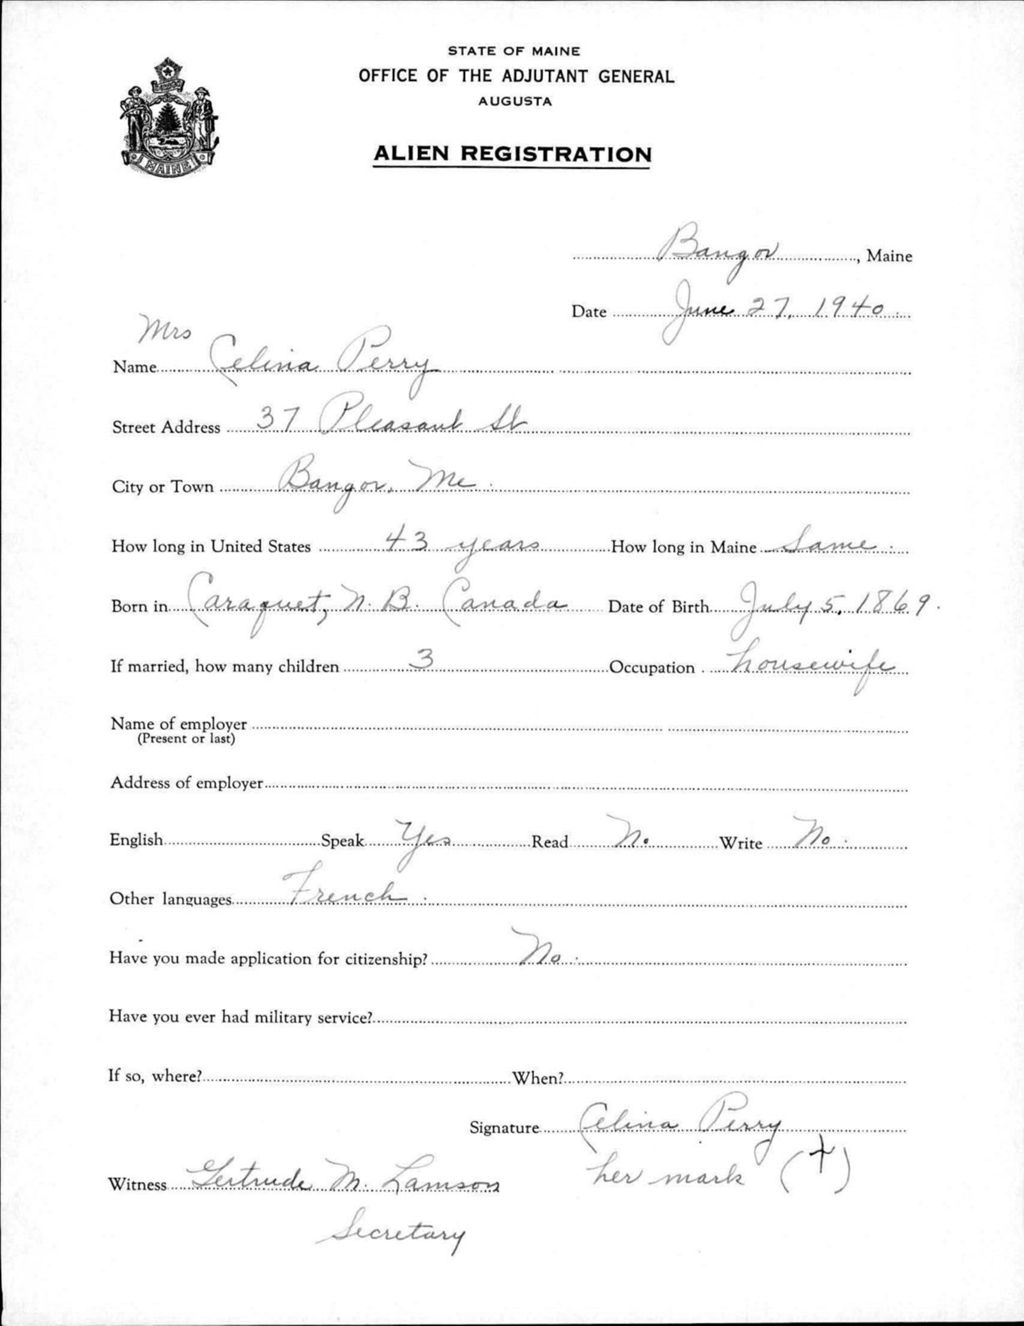 STATE OF MAINE
OFFICE OF THE ADJUTANT GENERAL
AUGUSTA
ALIEN REGISTRATION
MAINE
Bangor, Maine
Date June 27, 1940.
Mrs
Name Celina Perry
Street Address 37 Pleasant St
City or Town Bangor, Me.
How long in United States 43 years How long in Maine Same.
Born in Caraquet, N. B. Canada Date of Birth July 5, 1869.
If married, how many children 3 Occupation housewife
Name of employer
(Present or last)
Address of employer
English Speak Yes Read No Write No.
Other languages French.
Have you made application for citizenship? No.
Have you ever had military service?
If so, where? When?
Signature Celina Perry
her mark (+)
Witness Gertrude M. Lamson
Secretary